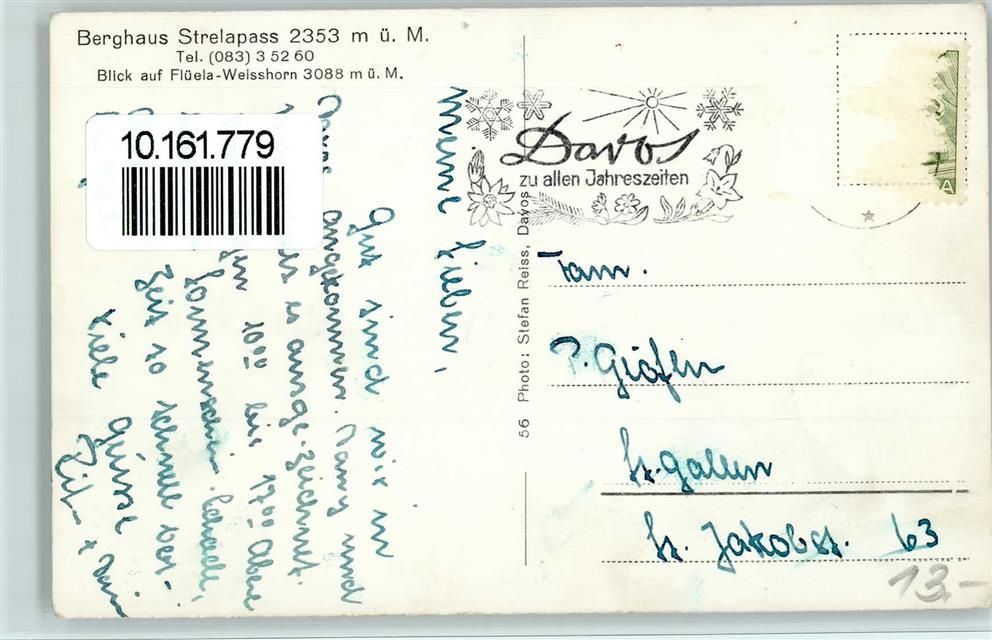 Berghaus Strelapass 2353 m ü. M.
Tel. (083) 3 52 60
Blick auf Flüela-Weisshorn 3088 m ü. M.
10.161.779
Meine Lieben,
Gut sind wir in
angekommen. Davos und
es ausge-zeichnet.
10 00 bis 17 00 Abe
Sonnenschein. Schade,
Zeit so schnell ver-
Liebe Grüsse
56 Photo: Stefan Reiss, Davos
Davos
zu allen Jahreszeiten
A
Fam.
P. Gräflin
St. Gallen
St. Jakobst. 63
13.-